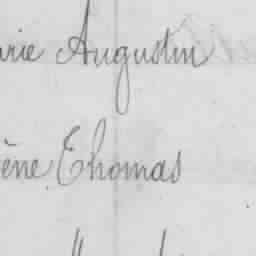 rie Augustin
ène Thomas